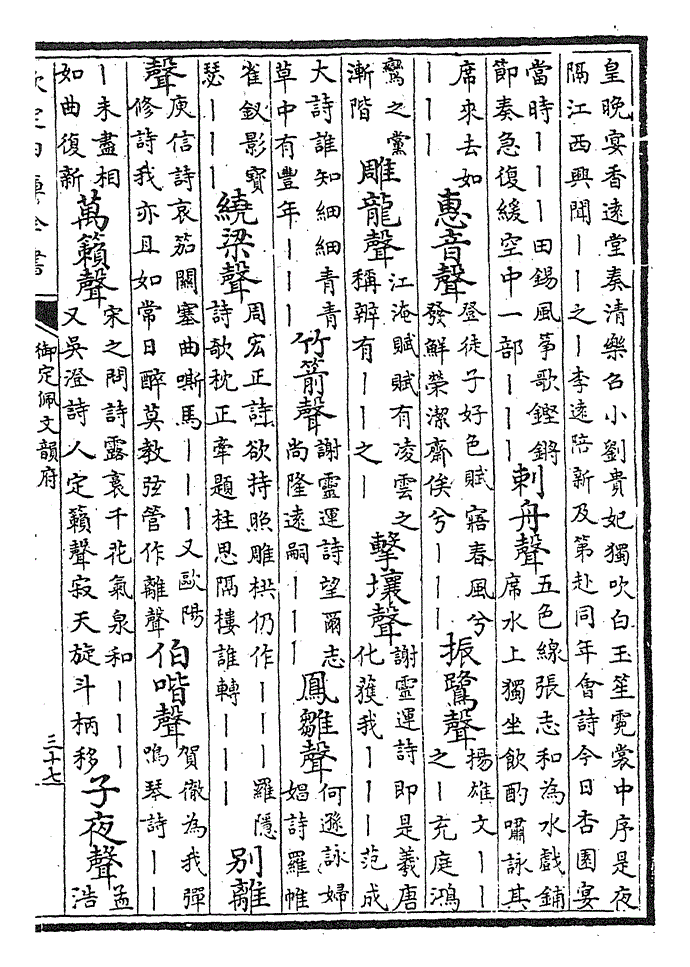 皇晚宴香遠堂奏清樂召小劉貴妃獨吹白玉笙霓裳中序是夜
隔江西興聞丨丨之丨李遠陪新及第赴同年會詩今日杏園宴
當時丨丨丨田錫風箏歌鏗鏘
節奏急復緩空中一部丨丨丨
刺舟聲
五色線張志和為水戲鋪
席水上獨坐飲酌嘯詠其
席來去如
丨丨丨
惠音聲
登徒子好色賦寤春風兮
發鮮榮潔齋俟兮丨丨丨
振鷺聲
揚雄文丨丨
之丨充庭鴻
鸞之黨
漸階
雕龍聲
江淹賦賦有凌雲之
稱辨有丨丨之丨
擊壤聲
謝靈運詩即是羲唐
化獲我丨丨丨范成
大詩誰知細細青青
草中有豐年丨丨丨
竹箭聲
謝靈運詩望爾志
尚隆遠嗣丨丨丨
鳳雛聲
何遜詠婦
娼詩羅帷
雀釵影寶
瑟丨丨丨
繞梁聲
周宏正詩欲持照雕栱仍作丨丨丨羅隱
詩欹枕正牽題柱思隔樓誰轉丨丨丨
别離
聲
庾信詩哀笳關塞曲嘶馬丨丨丨又歐陽
修詩我亦且如常日醉莫教弦管作離聲
伯喈聲
賀徹為我彈
鳴琴詩丨丨
丨未盡相
如曲復新
萬籟聲
宋之問詩露裛千花氣泉和丨丨丨
又吳澄詩人定籟聲寂天旋斗柄移
子夜聲
孟
浩
欽定四庫全書
御定佩文韻府
三十七